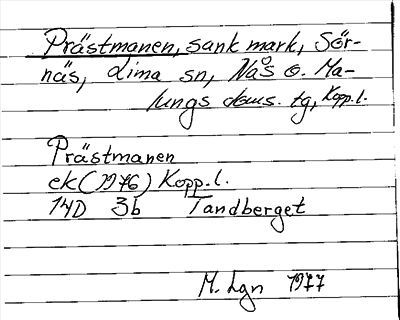 Prästmanen, sank mark, Sör-
näs, Lima sn, Nås o. Ma-
lungs doms. tg, Kopp.l.
Prästmanen
ek (1976) Kopp.l.
14D 3b Tandberget
M. Lgn 1977